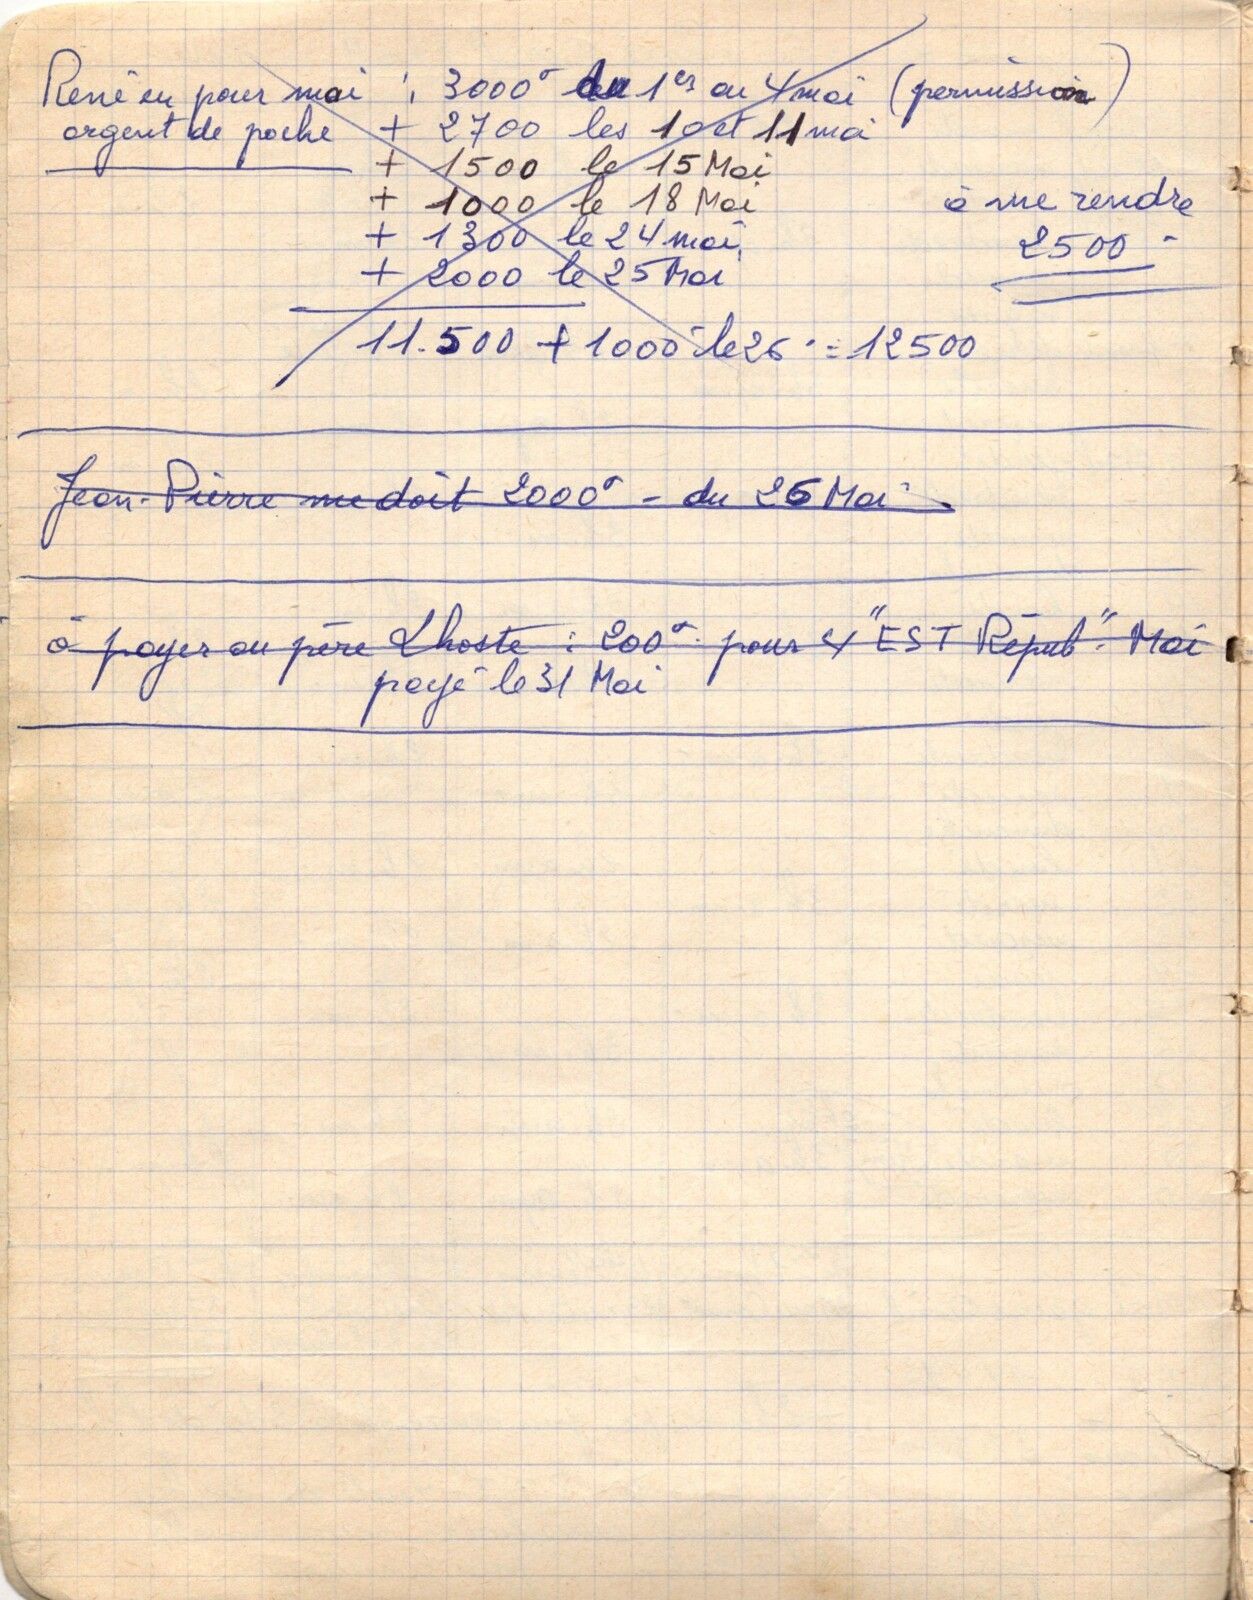 René eu pour mai : 3000° du 1er au 4 mai (permission)
argent de poche + 2700 les 10 et 11 mai
+ 1500 le 15 Mai
+ 1000 le 18 Mai
à me rendre
+ 1300 le 24 mai
2500 -
+ 2000 le 25 Mai
11.500 + 1000 le 26 = 12500
Jean-Pierre me doit 2000° - du 26 Mai
à payer au père Lhoste : 200° pour 4 "EST Répub". Mai
payé le 31 Mai